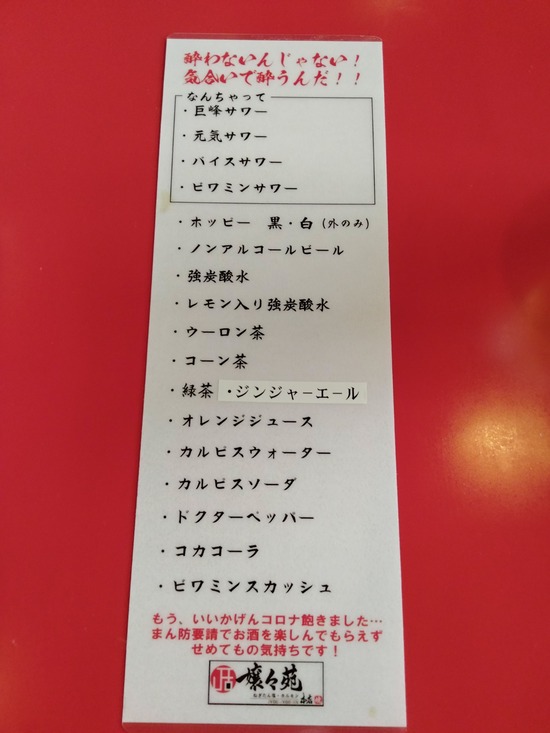 酔わないんじゃない！
気合いで酔うんだ！！
なんちゃって
・巨峰サワー
・元気サワー
・バイスサワー
・ビワミンサワー
・ホッピー　黒・白（外のみ）
・ノンアルコールビール
・強炭酸水
・レモン入り強炭酸水
・ウーロン茶
・コーン茶
・緑茶 ・ジンジャーエール
・オレンジジュース
・カルピスウォーター
・カルピスソーダ
・ドクターペッパー
・コカコーラ
・ビワミンスカッシュ
もう、いいかげんコロナ飽きました…
まん防要請でお酒を楽しんでもらえず
せめてもの気持ちです！
嬢々苑
ねぎたん塩・ホルモン